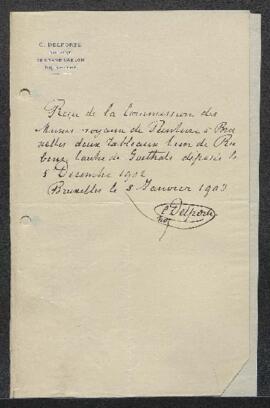 C. DELPORTE
Reçu de la Commission des
Musées royaux de Peinture à Bru-
xelles deux tableaux l'un de Ru-
bens, l'autre de Goethals déposés le
5 Décembre 1902
Bruxelles le 5 Janvier 1903
C Delporte